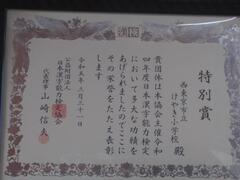 特別賞
西東京市立
けやき小学校 殿
貴団体は本協会主催令和
四年度日本漢字能力検定
において多大な功績を
あげられましたのでここに
その栄誉をたたえ表彰
します
令和五年三月三十一日
公益財団法人
日本漢字能力検定協会
代表理事 山崎信夫